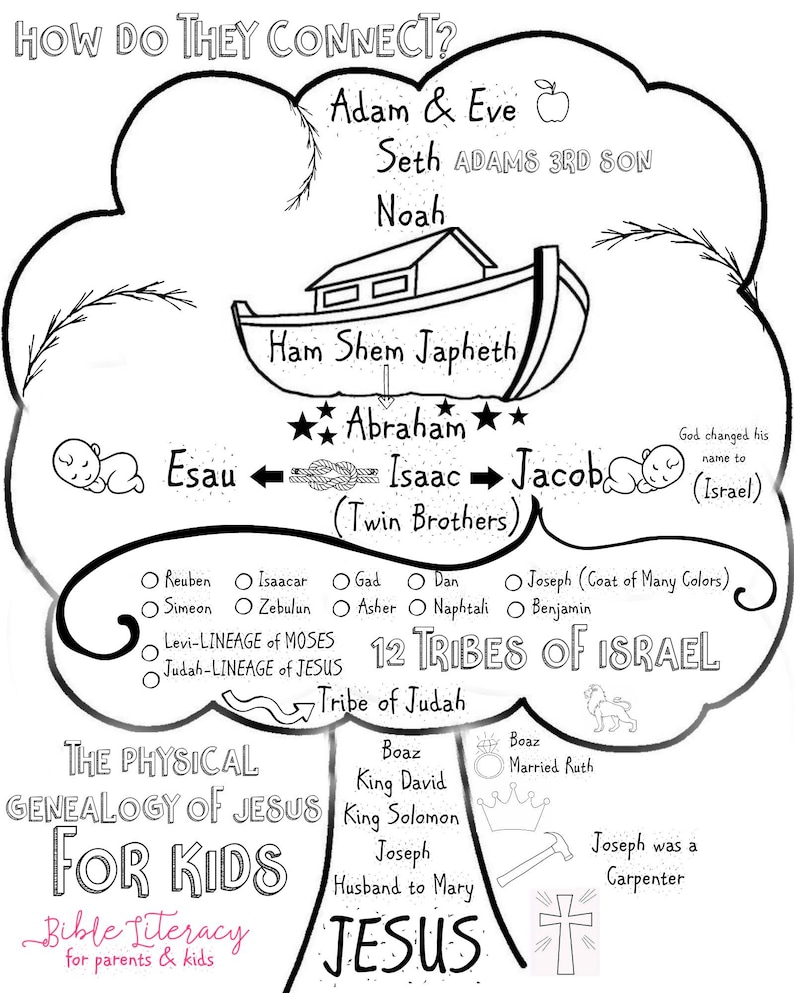 HOW DO THEY CONNECT?
Adam & Eve
Seth ADAMS 3RD SON
Noah
Ham Shem Japheth
Abraham
Esau Isaac Jacob
God changed his
name to
(Israel)
(Twin Brothers)
Reuben Isaacar Gad Dan Joseph (Coat of Many Colors)
Simeon Zebulun Asher Naphtali Benjamin
Levi-LINEAGE of MOSES
Judah-LINEAGE of JESUS
12 TRIBES OF ISRAEL
Tribe of Judah
THE PHYSICAL
GENEALOGY OF JESUS
FOR KIDS
Bible Literacy
for parents & kids
Boaz
King David
King Solomon
Joseph
Husband to Mary
JESUS
Boaz
Married Ruth
Joseph was a
Carpenter